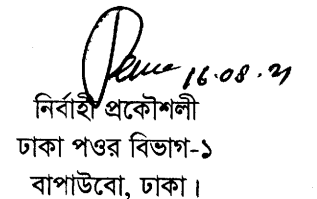 16.08.21
নির্বাহী প্রকৌশলী
ঢাকা পওর বিভাগ-১
বাপাউবো, ঢাকা।